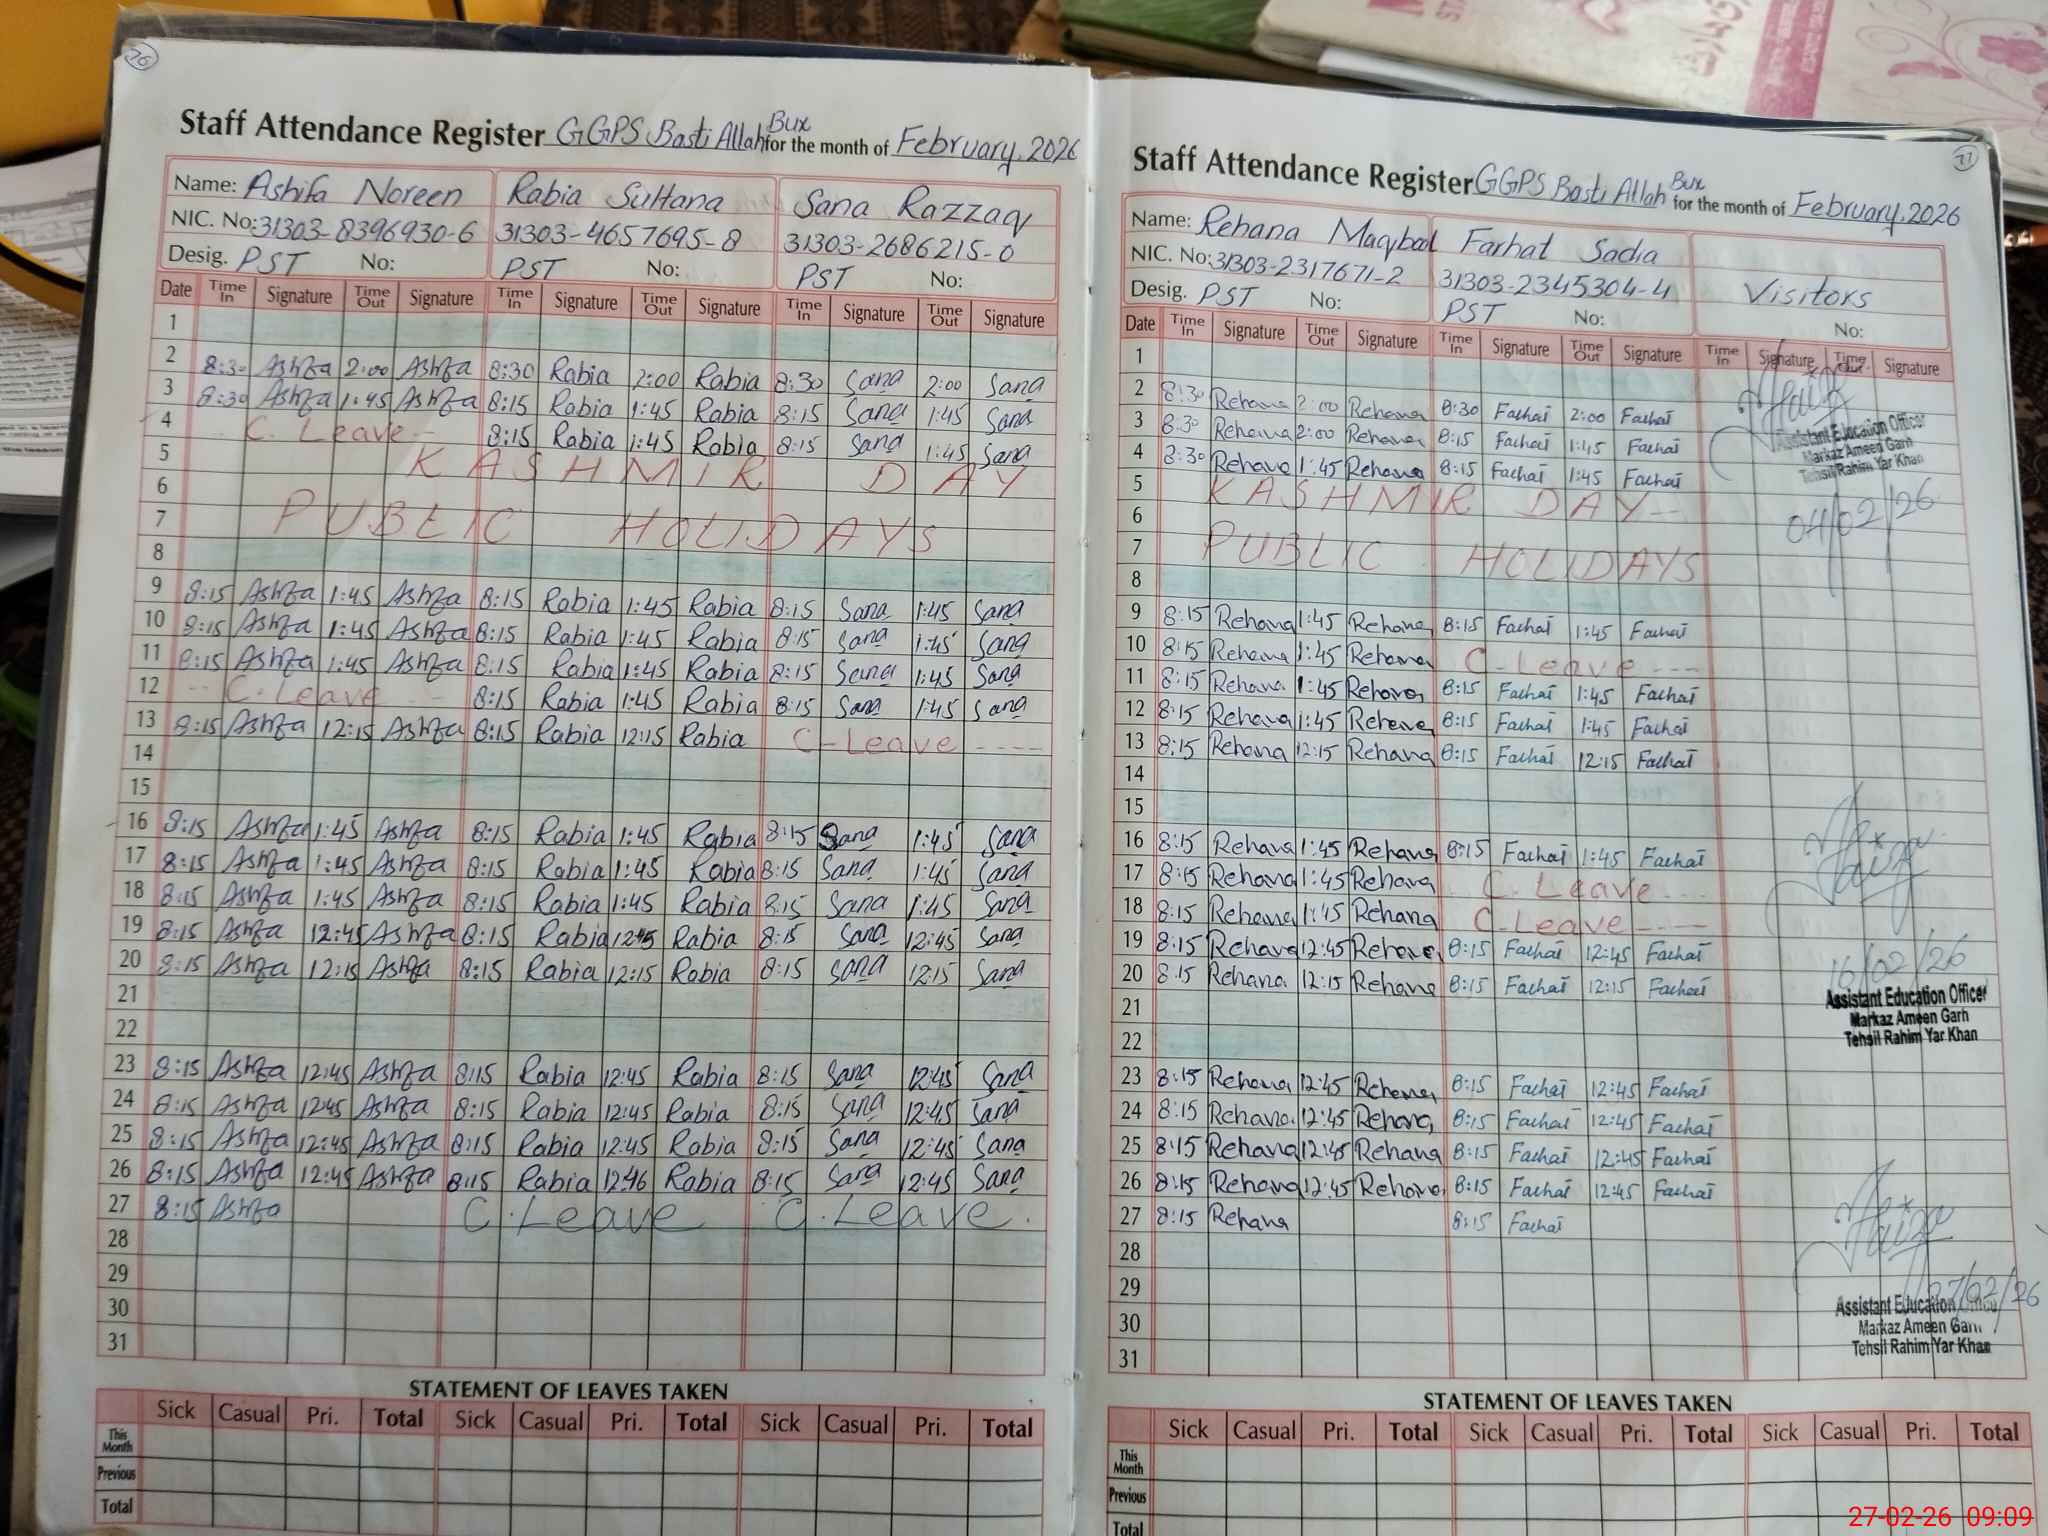 76
Staff Attendance Register GGPS Basti Allah Bux for the month of February, 2026
Name: Ashifa Noreen Rabia Sultana Sana Razzaq
NIC. No: 31303-8396930-6 31303-4657695-8 31303-2686215-0
Desig. PST No: PST No: PST No:
Date Time In Signature Time Out Signature Time In Signature Time Out Signature Time In Signature Time Out Signature
1
2 8:30 Ashfa 2:00 Ashfa 8:30 Rabia 2:00 Rabia 8:30 Sana 2:00 Sana
3 8:30 Ashfa 1:45 Ashfa 8:15 Rabia 1:45 Rabia 8:15 Sana 1:45 Sana
4 C. Leave 8:15 Rabia 1:45 Rabia 8:15 Sana 1:45 Sana
5 KASHMIR DAY
6
7 PUBLIC HOLIDAYS
8
9 8:15 Ashfa 1:45 Ashfa 8:15 Rabia 1:45 Rabia 8:15 Sana 1:45 Sana
10 8:15 Ashfa 1:45 Ashfa 8:15 Rabia 1:45 Rabia 8:15 Sana 1:45 Sana
11 8:15 Ashfa 1:45 Ashfa 8:15 Rabia 1:45 Rabia 8:15 Sana 1:45 Sana
12 C. Leave 8:15 Rabia 1:45 Rabia 8:15 Sana 1:45 Sana
13 8:15 Ashfa 12:15 Ashfa 8:15 Rabia 12:15 Rabia C-Leave ----
14
15
16 8:15 Ashfa 1:45 Ashfa 8:15 Rabia 1:45 Rabia 8:15 Sana 1:45 Sana
17 8:15 Ashfa 1:45 Ashfa 8:15 Rabia 1:45 Rabia 8:15 Sana 1:45 Sana
18 8:15 Ashfa 1:45 Ashfa 8:15 Rabia 1:45 Rabia 8:15 Sana 1:45 Sana
19 8:15 Ashfa 12:45 Ashfa 8:15 Rabia 12:45 Rabia 8:15 Sana 12:45 Sana
20 8:15 Ashfa 12:15 Ashfa 8:15 Rabia 12:15 Rabia 8:15 Sana 12:15 Sana
21
22
23 8:15 Ashfa 12:45 Ashfa 8:15 Rabia 12:45 Rabia 8:15 Sana 12:45 Sana
24 8:15 Ashfa 12:45 Ashfa 8:15 Rabia 12:45 Rabia 8:15 Sana 12:45 Sana
25 8:15 Ashfa 12:45 Ashfa 8:15 Rabia 12:45 Rabia 8:15 Sana 12:45 Sana
26 8:15 Ashfa 12:45 Ashfa 8:15 Rabia 12:46 Rabia 8:15 Sana 12:45 Sana
27 8:15 Ashfa C. Leave C. Leave.
28
29
30
31
STATEMENT OF LEAVES TAKEN
Sick Casual Pri. Total Sick Casual Pri. Total Sick Casual Pri. Total
This Month
Previous
Total
77
Staff Attendance Register GGPS Basti Allah Bux for the month of February, 2026
Name: Rehana Maqbool Farhat Sadia
NIC. No: 31303-2317671-2 31303-2345304-4 Visitors
Desig. PST No: PST No: No:
Date Time In Signature Time Out Signature Time In Signature Time Out Signature Time In Signature Time Out Signature
1
2 8:30 Rehana 2:00 Rehana 8:30 Farhat 2:00 Farhat
3 8:30 Rehana 2:00 Rehana 8:15 Farhat 1:45 Farhat
4 8:30 Rehana 1:45 Rehana 8:15 Farhat 1:45 Farhat
Assistant Education Officer
Markaz Ameen Garh
Tehsil Rahim Yar Khan
04/02/26
5 KASHMIR DAY
6
7 PUBLIC HOLIDAYS
8
9 8:15 Rehana 1:45 Rehana 8:15 Farhat 1:45 Farhat
10 8:15 Rehana 1:45 Rehana C-Leave ----
11 8:15 Rehana 1:45 Rehana 8:15 Farhat 1:45 Farhat
12 8:15 Rehana 1:45 Rehana 8:15 Farhat 1:45 Farhat
13 8:15 Rehana 12:15 Rehana 8:15 Farhat 12:15 Farhat
14
15
16 8:15 Rehana 1:45 Rehana 8:15 Farhat 1:45 Farhat
17 8:15 Rehana 1:45 Rehana C. Leave
18 8:15 Rehana 1:45 Rehana C-Leave ----
19 8:15 Rehana 12:45 Rehana 8:15 Farhat 12:45 Farhat
20 8:15 Rehana 12:15 Rehana 8:15 Farhat 12:15 Farhat
21
22
16/02/26
Assistant Education Officer
Markaz Ameen Garh
Tehsil Rahim Yar Khan
23 8:15 Rehana 12:45 Rehana 8:15 Farhat 12:45 Farhat
24 8:15 Rehana 12:45 Rehana 8:15 Farhat 12:45 Farhat
25 8:15 Rehana 12:45 Rehana 8:15 Farhat 12:45 Farhat
26 8:15 Rehana 12:45 Rehana 8:15 Farhat 12:45 Farhat
27 8:15 Rehana 8:15 Farhat
28
29
30
31
27/02/26
Assistant Education Officer
Markaz Ameen Garh
Tehsil Rahim Yar Khan
STATEMENT OF LEAVES TAKEN
Sick Casual Pri. Total Sick Casual Pri. Total Sick Casual Pri. Total
This Month
Previous
Total
27-02-26 09:09